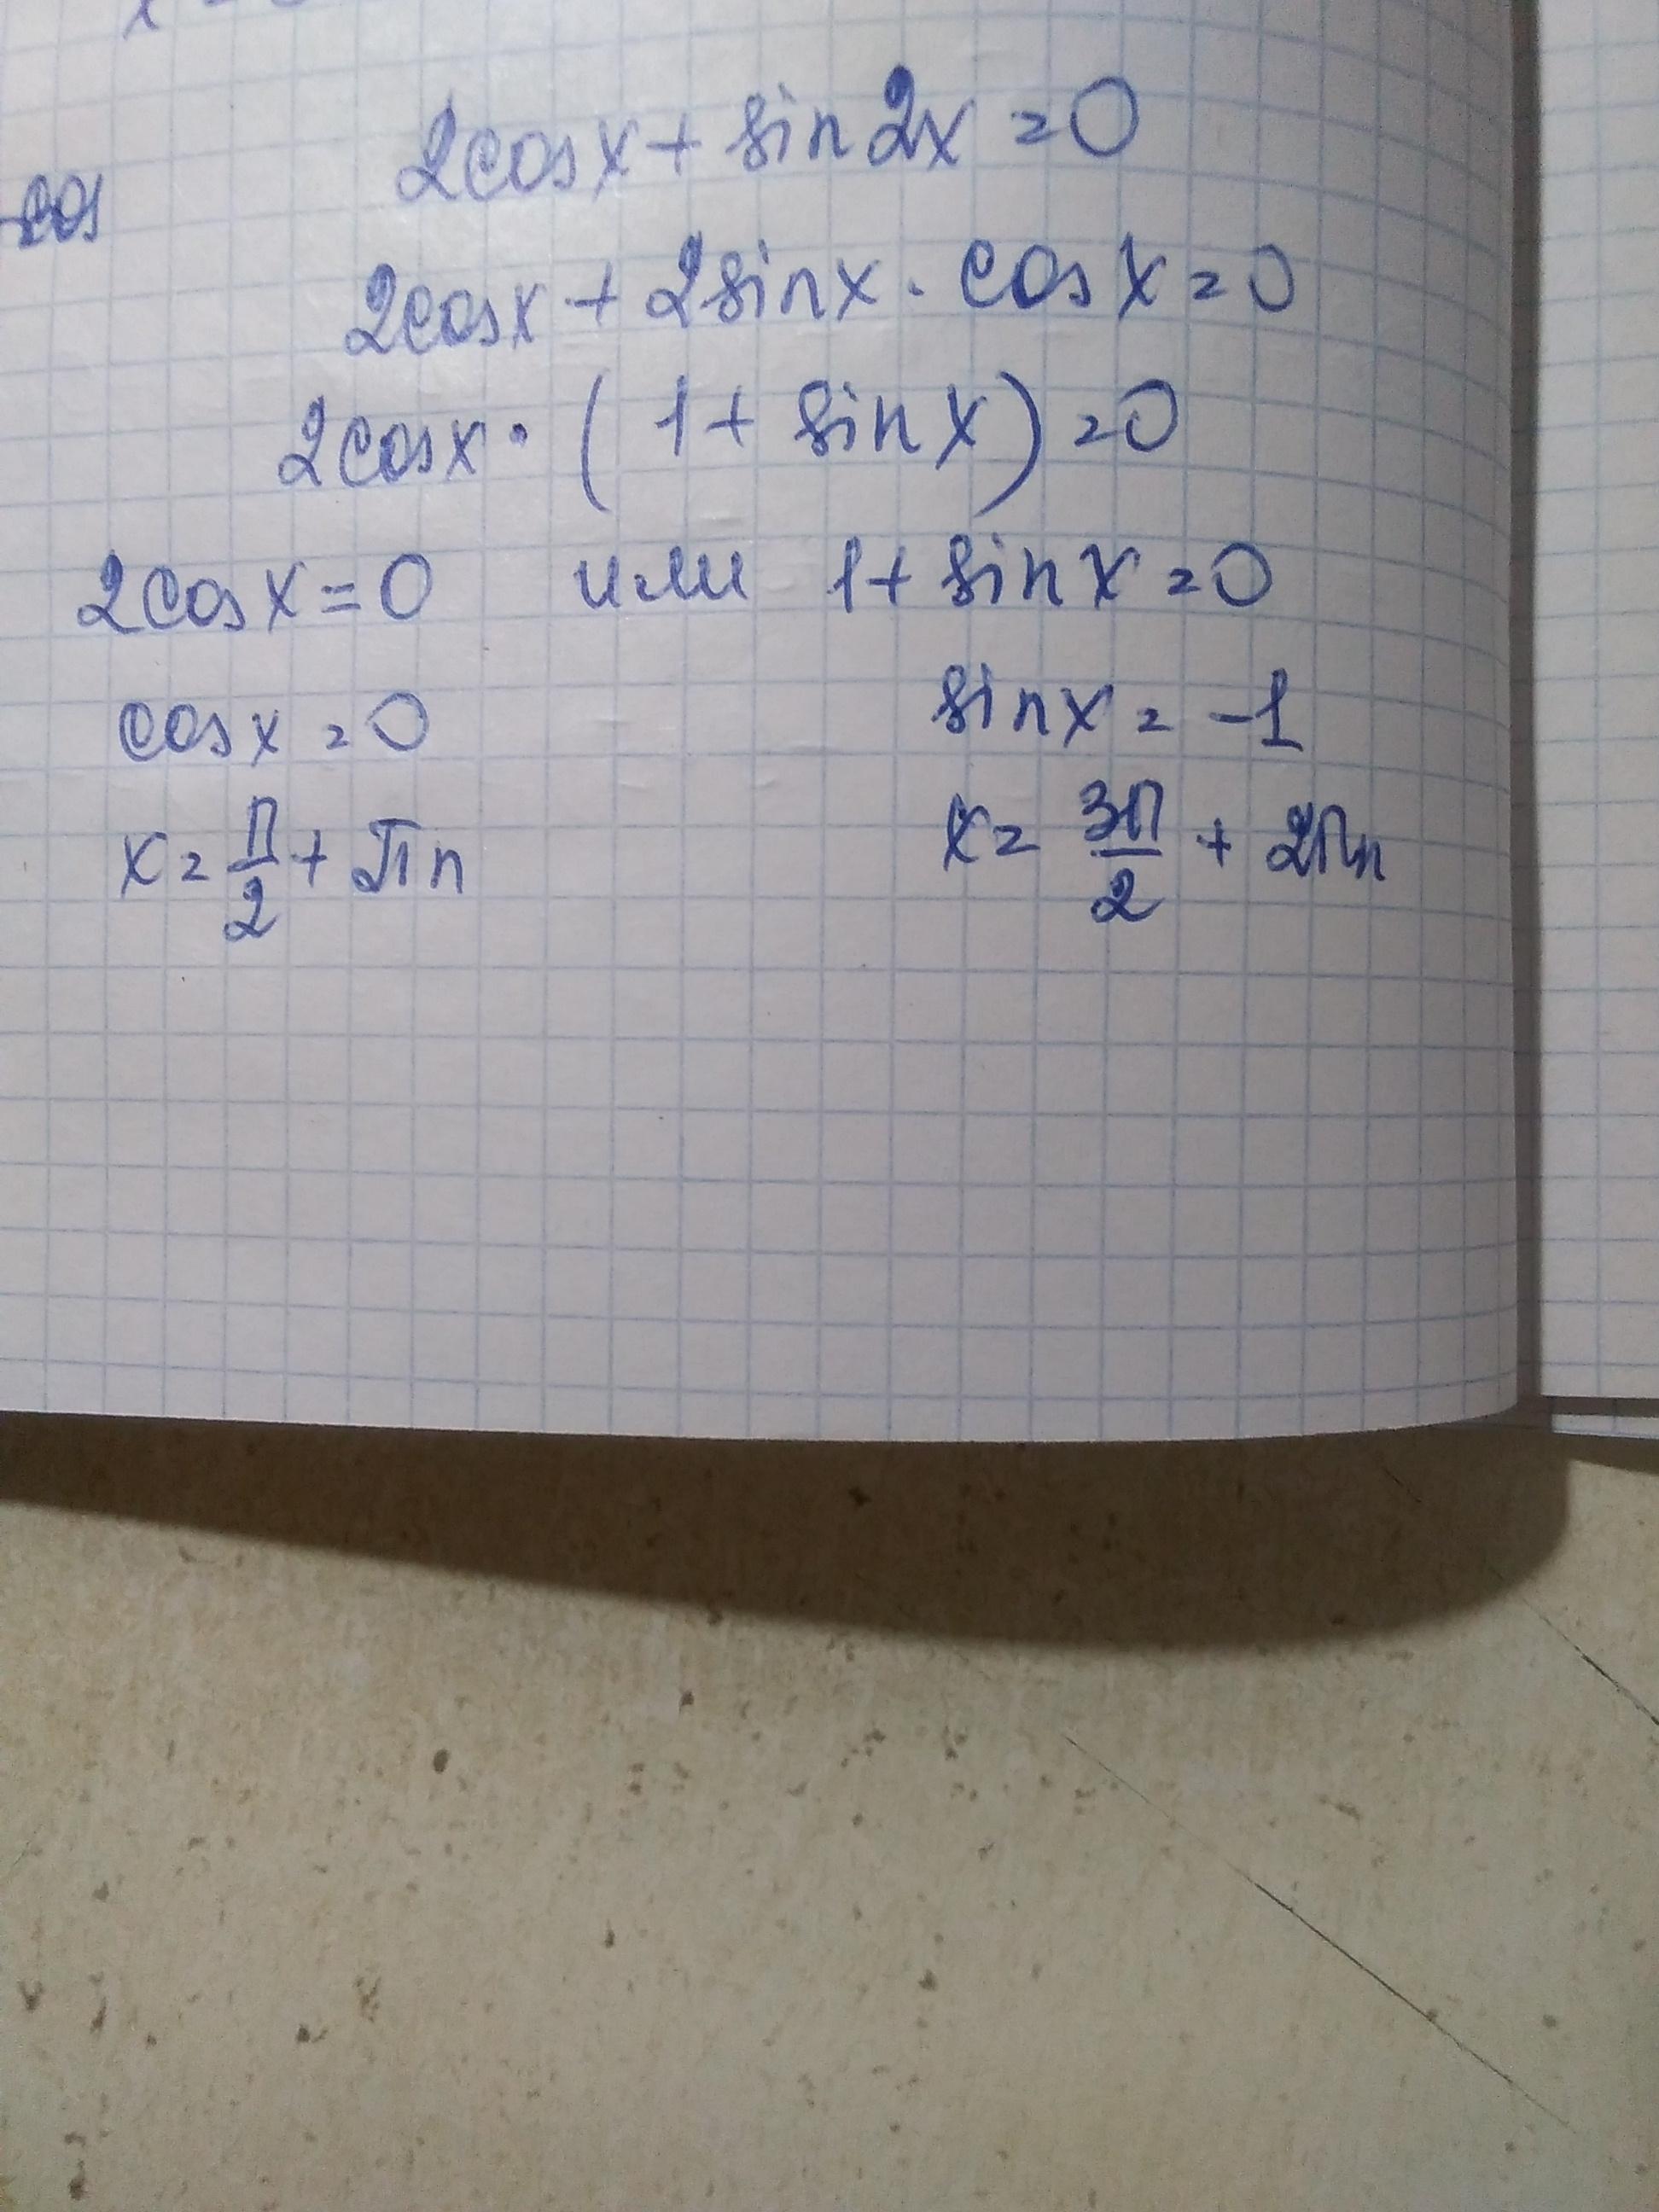 2cosx + sin2x = 0
cos
2cosx + 2sinx · cosx = 0
2cosx · (1 + sinx) = 0
2cosx = 0 или 1 + sinx = 0
cosx = 0 sinx = -1
x = π/2 + πn x = 3π/2 + 2πn